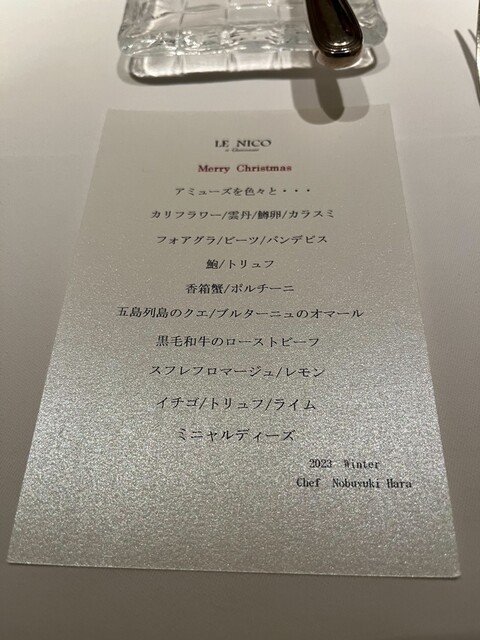 LE NICO
Merry Christmas
アミューズを色々と・・・
カリフラワー/雲丹/鱒卵/カラスミ
フォアグラ/ビーツ/パンデピス
鮑/トリュフ
香箱蟹/ポルチーニ
五島列島のクエ/ブルターニュのオマール
黒毛和牛のローストビーフ
スフレフロマージュ/レモン
イチゴ/トリュフ/ライム
ミニャルディーズ
2023 Winter
Chef Nobuyuki Hara